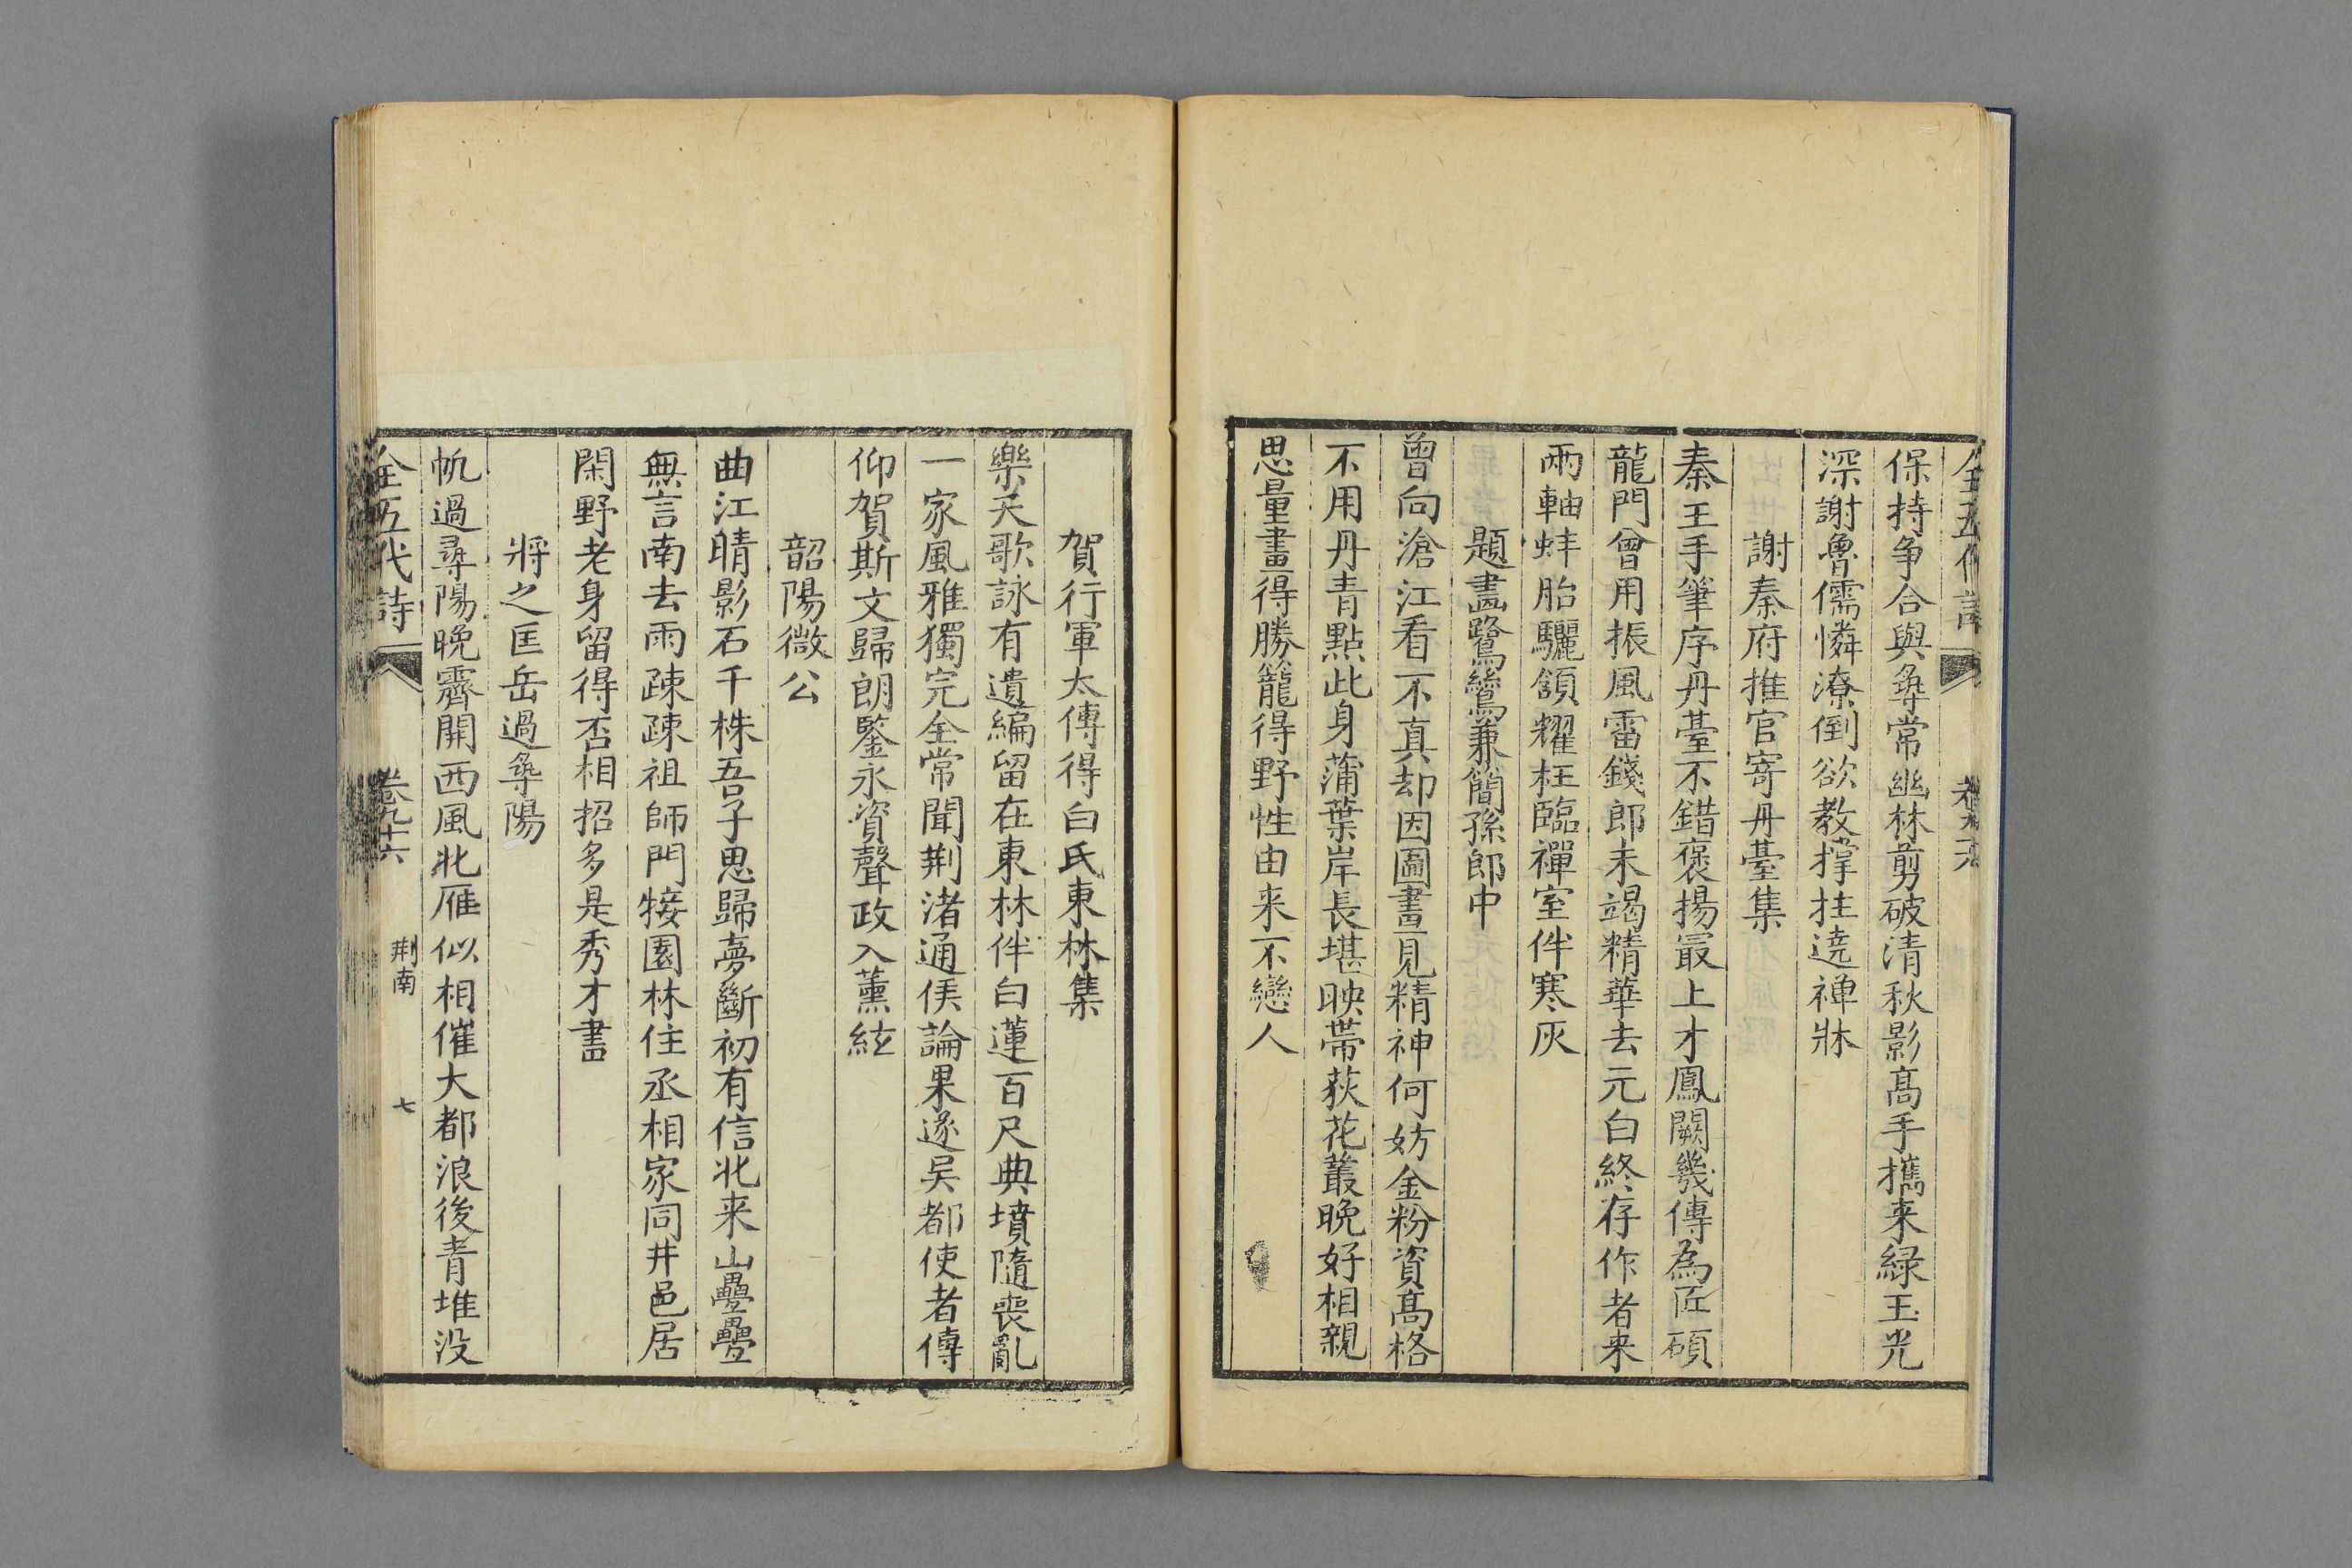 全五代詩
保持争合與尋常幽林剪破清秋影高手攜来緑玉光
深謝魯儒憐潦倒欲教撑拄遶禅牀
謝秦府推官寄丹臺集
秦王手筆序丹臺不錯褒揚最上才鳳闕幾傳為匠碩
龍門曾用振風雷錢郎未竭精華去元白終存作者来
兩軸蚌胎驪頷耀枉臨禪室伴寒灰
題畫鷺鷥兼簡孫郎中
曾向滄江看不真却因圖畫見精神何妨金粉資高格
不用丹青點此身蒲葉岸長堪映帶荻花叢晚好相親
思量畫得勝籠得野性由来不戀人
賀行軍太傅得白氏東林集
樂天歌詠有遺編留在東林伴白蓮百尺典墳隨喪亂
一家風雅獨完全常聞荆渚通侯論果遂吴都使者傳
仰賀斯文歸朗鑒永資聲政入薰絃
韶陽微公
曲江晴影石千株吾子思歸夢斷初有信北来山疊疊
無言南去雨疎疎祖師門接園林住丞相家同井邑居
閑野老身留得否相招多是秀才書
將之匡岳過尋陽
帆過尋陽晚霽開西風北雁似相催大都浪後青堆没
全五代詩 卷九十六 荆南 七